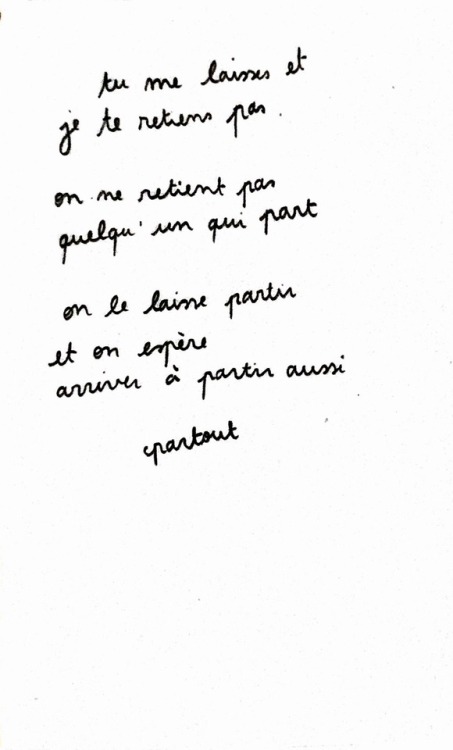 tu me laisses et
je te retiens pas.
on ne retient pas
quelqu'un qui part
on le laisse partir
et on espère
arriver à partir aussi
partout